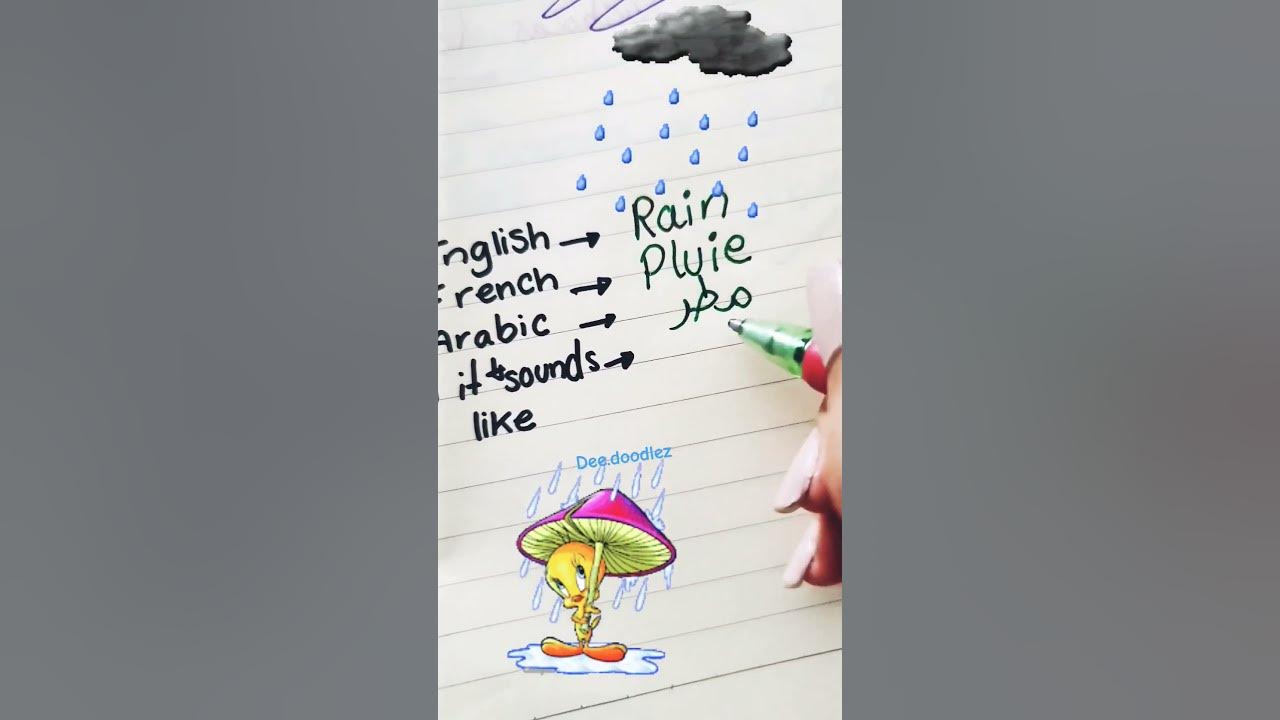 English → Rain
French → Pluie
Arabic → مطر
it sounds →
like
Dee.doodlez